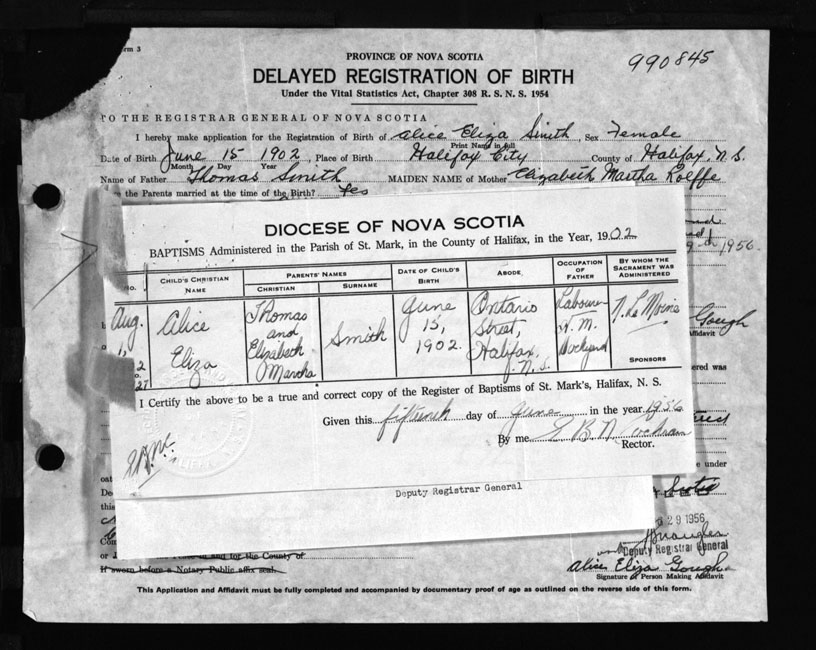 Form 3
990845
PROVINCE OF NOVA SCOTIA
DELAYED REGISTRATION OF BIRTH
Under the Vital Statistics Act, Chapter 308 R. S. N. S. 1954
TO THE REGISTRAR GENERAL OF NOVA SCOTIA
I hereby make application for the Registration of Birth of Alice Eliza Smith, Sex Female
Print Name in full
Date of Birth June 15 1902, Place of Birth Halifax City County of Halifax, N.S.
Month Day Year
Name of Father Thomas Smith MAIDEN NAME of Mother Elizabeth Martha Rolffe
the Parents married at the time of the Birth? Yes
1956
DIOCESE OF NOVA SCOTIA
BAPTISMS Administered in the Parish of St. Mark, in the County of Halifax, in the Year, 1902
No. CHILD'S CHRISTIAN NAME PARENTS' NAMES CHRISTIAN SURNAME DATE OF CHILD'S BIRTH ABODE OCCUPATION OF FATHER BY WHOM THE SACRAMENT WAS ADMINISTERED
Aug. 1, Alice Eliza Thomas and Elizabeth Martha Smith June 15, 1902. Ontario Street, Halifax, N.S. Labourer H.M. Dockyard N. Le Moine
SPONSORS
Gough
Affidavit
ered was
I Certify the above to be a true and correct copy of the Register of Baptisms of St. Mark's, Halifax, N. S.
Given this fifteenth day of June in the year 1956
By me E B N Cochran
Rector.
under
Deputy Registrar General
29 1956
Deputy Registrar General
and for the County of
If sworn before a Notary Public affix seal.
Alice Eliza Gough
Signature of Person Making Affidavit
This Application and Affidavit must be fully completed and accompanied by documentary proof of age as outlined on the reverse side of this form.